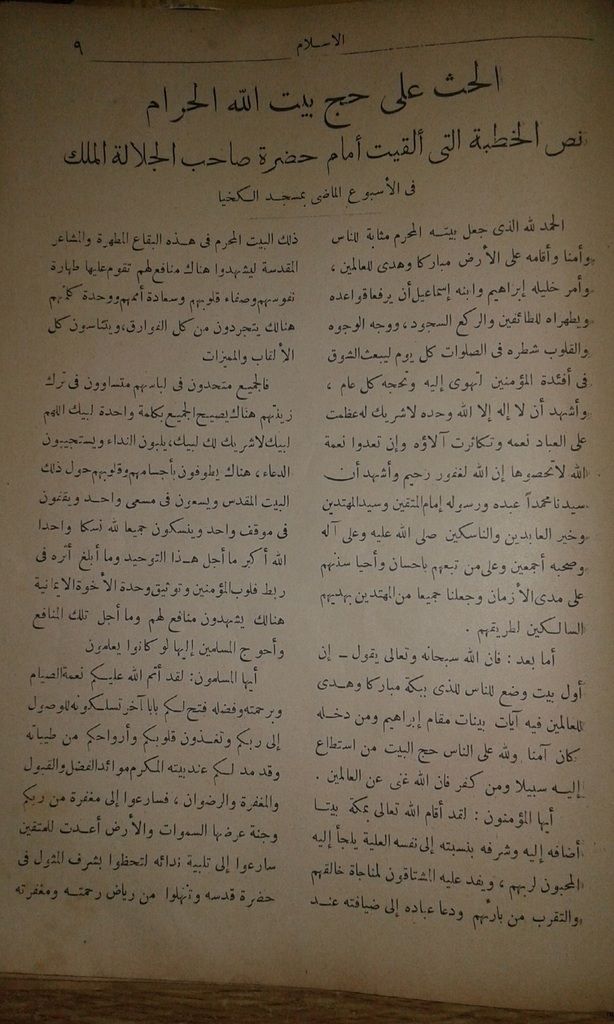 الاسلام
٩
الحث على حج بيت الله الحرام
نص الخطبة التى ألقيت أمام حضرة صاحب الجلالة الملك
فى الأسبوع الماضى بمسجد الكخيا
الحمد لله الذى جعل بيته المحرم مثابة للناس
وأمنا وأقامه على الأرض مباركا وهدى للعالمين ،
وأمر خليله إبراهيم وابنه إسماعيل أن يرفعا قواعده
ويطهراه للطائفين والركع السجود ، ووجه الوجوه
والقلوب شطره فى الصلوات كل يوم ليبعث الشوق
فى أفئدة المؤمنين لتهوى إليه وتحجه كل عام ،
وأشهد أن لا إله إلا الله وحده لاشريك له عظمت
على العباد نعمه وتكاثرت آلاؤه وإن تعدوا نعمة
الله لاتحصوها إن الله لغفور رحيم وأشهد أن
سيدنا محمدا عبده ورسوله إمام المتقين وسيد المهتدين
وخير العابدين والناسكين صلى الله عليه وعلى آله
وصحبه أجمعين وعلى من تبعهم باحسان وأحيا سنتهم
على مدى الأزمان وجعلنا جميعا من المهتدين بهديهم
السالكين لطريقهم .
أما بعد : فان الله سبحانه وتعالى يقول ــ إن
أول بيت وضع للناس للذى ببكة مباركا وهدى
للعالمين فيه آيات بينات مقام إبراهيم ومن دخله
كان آمنا ولله على الناس حج البيت من استطاع
إليه سبيلا ومن كفر فان الله غنى عن العالمين .
أيها المؤمنون : لقد أقام الله تعالى بمكة بيتا
أضافه إليه وشرفه بنسبته إلى نفسه العلية يلجأ إليه
المحبون لربهم ، ويفد عليه المشتاقون لمناجاة خالقهم
والتقرب من بارئهم ودعا عباده إلى ضيافته عند
ذلك البيت المحرم فى هذه البقاع المطهرة والمشاعر
المقدسة ليشهدوا هناك منافع لهم تقوم عليها طهارة
نفوسهم وصفاء قلوبهم وسعادة أممهم ووحدة كلمتهم
هنالك يتجردون من كل الفوارق ، ويتناسون كل
الألقاب والميزات
فالجميع متحدون فى لباسهم متساوون فى ترك
زينتهم هناك يصيح الجميع بكلمة واحدة لبيك اللهم
لبيك لاشريك لك لبيك ، يلبون النداء ويستجيبون
الدعاء ، هناك يطوفون بأجسامهم وقلوبهم حول ذلك
البيت المقدس ويسعون فى مسعى واحد ويقفون
فى موقف واحد وينسكون جميعا لله نسكا واحدا
الله أكبر ما أجل هذا التوحيد وما أبلغ أثره فى
ربط قلوب المؤمنين وتوثيق وحدة الأخوة الايمانية
هنالك يشهدون منافع لهم وما أجل تلك المنافع
وأحوج المسلمين إليها لو كانوا يعلمون
أيها المسلمون : لقد أتم الله عليكم نعمة الصيام
وبرحمته وفضله فتح لكم بابا آخر تسلكونه للوصول
إلى ربكم وتغذون قلوبكم وأرواحكم من طيباته
وقد مد لكم عند بيته المكرم موائد الفضل والقبول
والمغفرة والرضوان ، فسارعوا إلى مغفرة من ربكم
وجنة عرضها السموات والأرض أعدت للمتقين
سارعوا إلى تلبية ندائه لتحظوا بشرف المثول فى
حضرة قدسه وتنهلوا من رياض رحمته ومغفرته